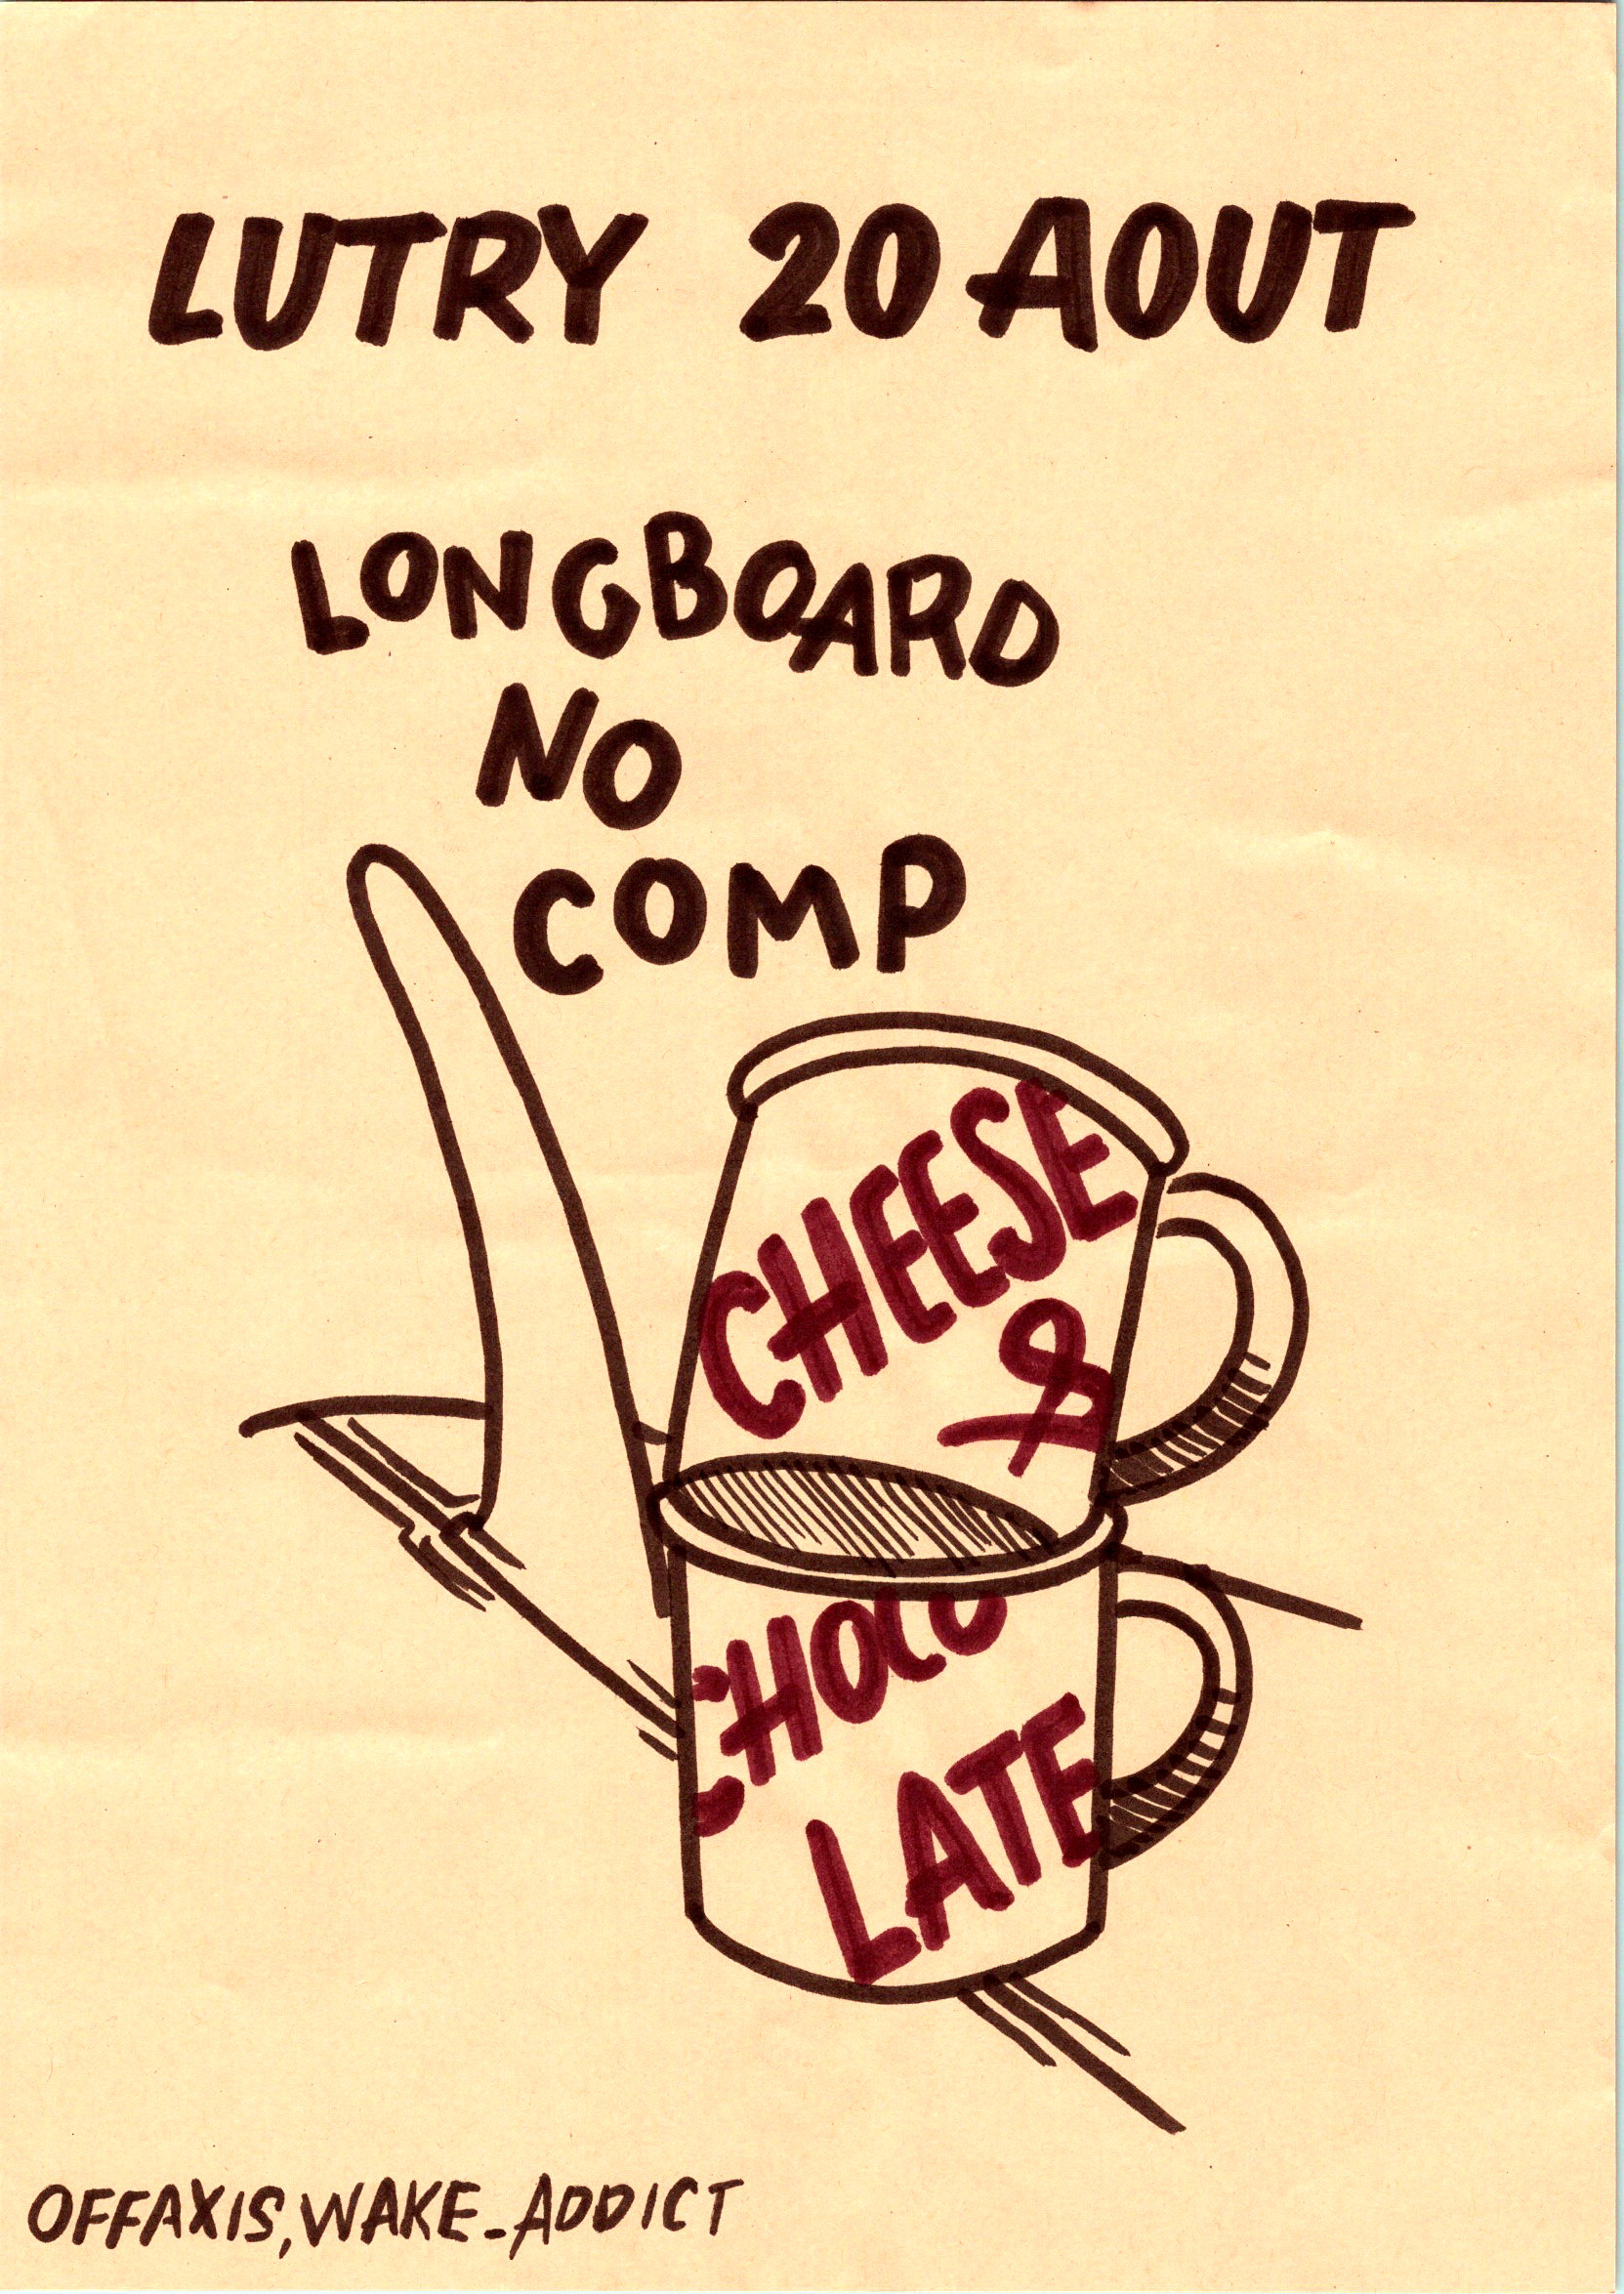 LUTRY 20 AOUT
LONGBOARD
NO
COMP
CHEESE
&
CHOCO
LATE
OFFAXIS, WAKE_ADDICT